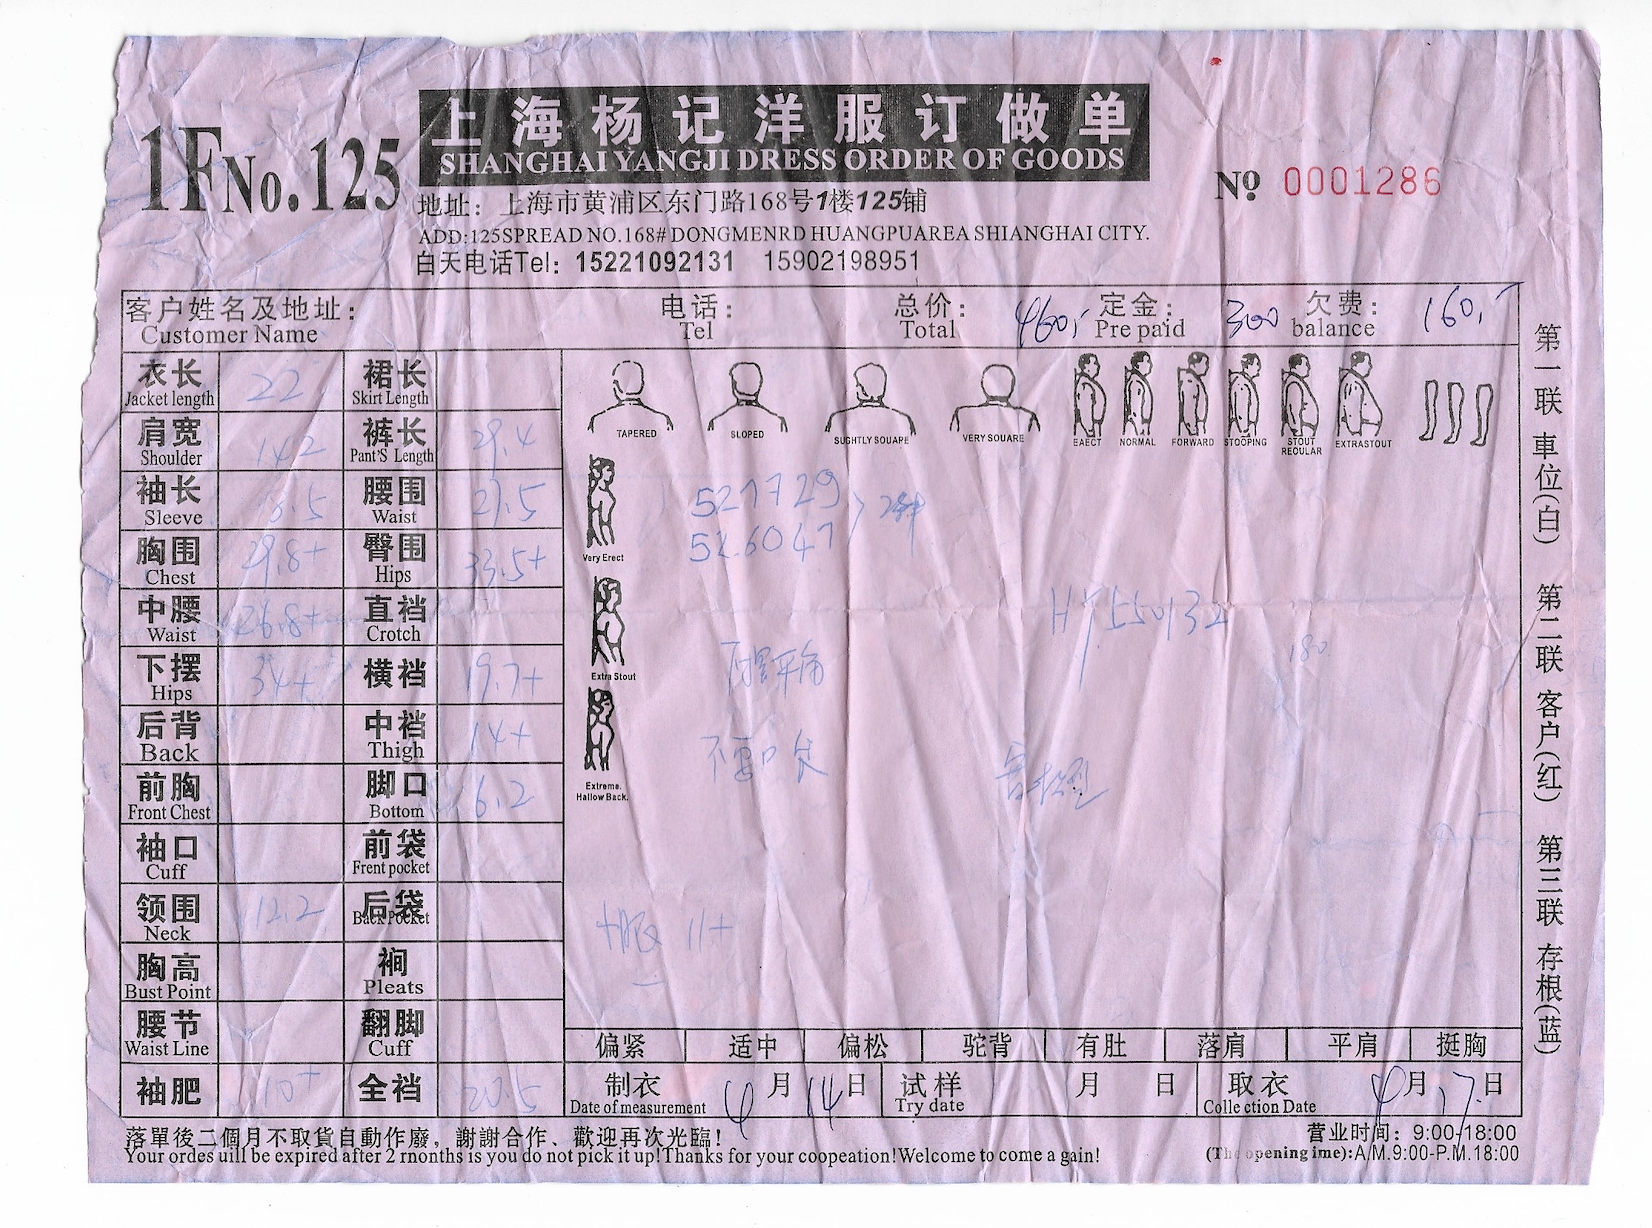 上海杨记洋服订做单
1F No.125
SHANGHAI YANGJI DRESS ORDER OF GOODS
No 0001286
地址：上海市黄浦区东门路168号1楼125铺
ADD:125SPREAD NO.168# DONGMENRD HUANGPUAREA SHIANGHAI CITY.
白天电话Tel: 15221092131 15902198951
客户姓名及地址： 电话： 总价： 460,- 定金： 300 欠费： 160,-
Customer Name Tel Total Pre paid balance
衣长 22 裙长
Jacket length Skirt Length
肩宽 14.2 裤长 29.4
Shoulder Pant'S Length
袖长 腰围 27.5
Sleeve Waist
胸围 29.8+ 臀围 33.5+
Chest Hips
中腰 26.8+ 直裆
Waist Crotch
下摆 34+ 横裆 19.7+
Hips
后背 中裆 14+
Back Thigh
前胸 脚口 6.2
Front Chest Bottom
袖口 前袋
Cuff Frent pocket
领围 12.2 后袋
Neck Back Pocket
胸高 裥
Bust Point Pleats
腰节 翻脚
Waist Line Cuff
袖肥 10+ 全裆 20.5
TAPERED SLOPED SLIGHTLY SQUAPE VERY SQUARE EAECT NORMAL FORWARD STOOPING STOUT RECULAR EXTRASTOUT
Very Erect
521729
Extra Stout
H 550132
180
下摆平角
Extreme.
Hallow Back.
不要口袋
11+
偏紧 适中 偏松 驼背 有肚 落肩 平肩 挺胸
制衣 4月14日 试样 月 日 取衣 4月17日
Date of measurement Try date Colle ction Date
落單後二個月不取貨自動作廢，謝謝合作、歡迎再次光臨！
营业时间：9:00-18:00
Your ordes uill be expired after 2 rnonths is you do not pick it up!Thanks for your coopeation!Welcome to come a gain!
(The opening ime):A/M.9:00-P.M.18:00
第一联 車位(白) 第二联 客户(红) 第三联 存根(蓝)